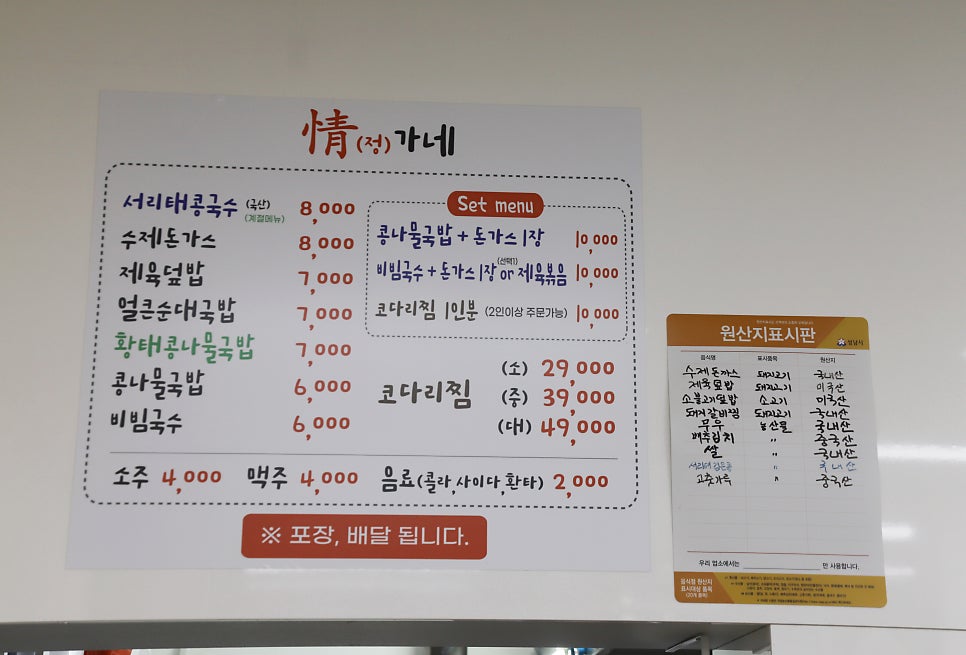 情(정)가네
서리태콩국수 (국산) (계절메뉴) 8,000
수제돈가스 8,000
제육덮밥 7,000
얼큰순대국밥 7,000
황태콩나물국밥 7,000
콩나물국밥 6,000
비빔국수 6,000
Set menu
콩나물국밥 + 돈가스1장 10,000
비빔국수 + 돈가스1장 (선택1) or 제육볶음 10,000
코다리찜 1인분 (2인이상 주문가능) 10,000
코다리찜
(소) 29,000
(중) 39,000
(대) 49,000
소주 4,000 맥주 4,000 음료(콜라,사이다,환타) 2,000
※ 포장, 배달 됩니다.
원산지표시판
성남시
음식명 표시품목 원산지
수제돈까스 돼지고기 국내산
제육덮밥 돼지고기 미국산
소불고기덮밥 소고기 미국산
돼지갈비찜 돼지고기 국내산
농산물 국내산
배추김치 〃 중국산
쌀 〃 국내산
서리태 검은콩 〃 국내산
고춧가루 〃 중국산
우리 업소에서는 만 사용합니다.
음식점 원산지
표시대상 품목
(20개 품목)